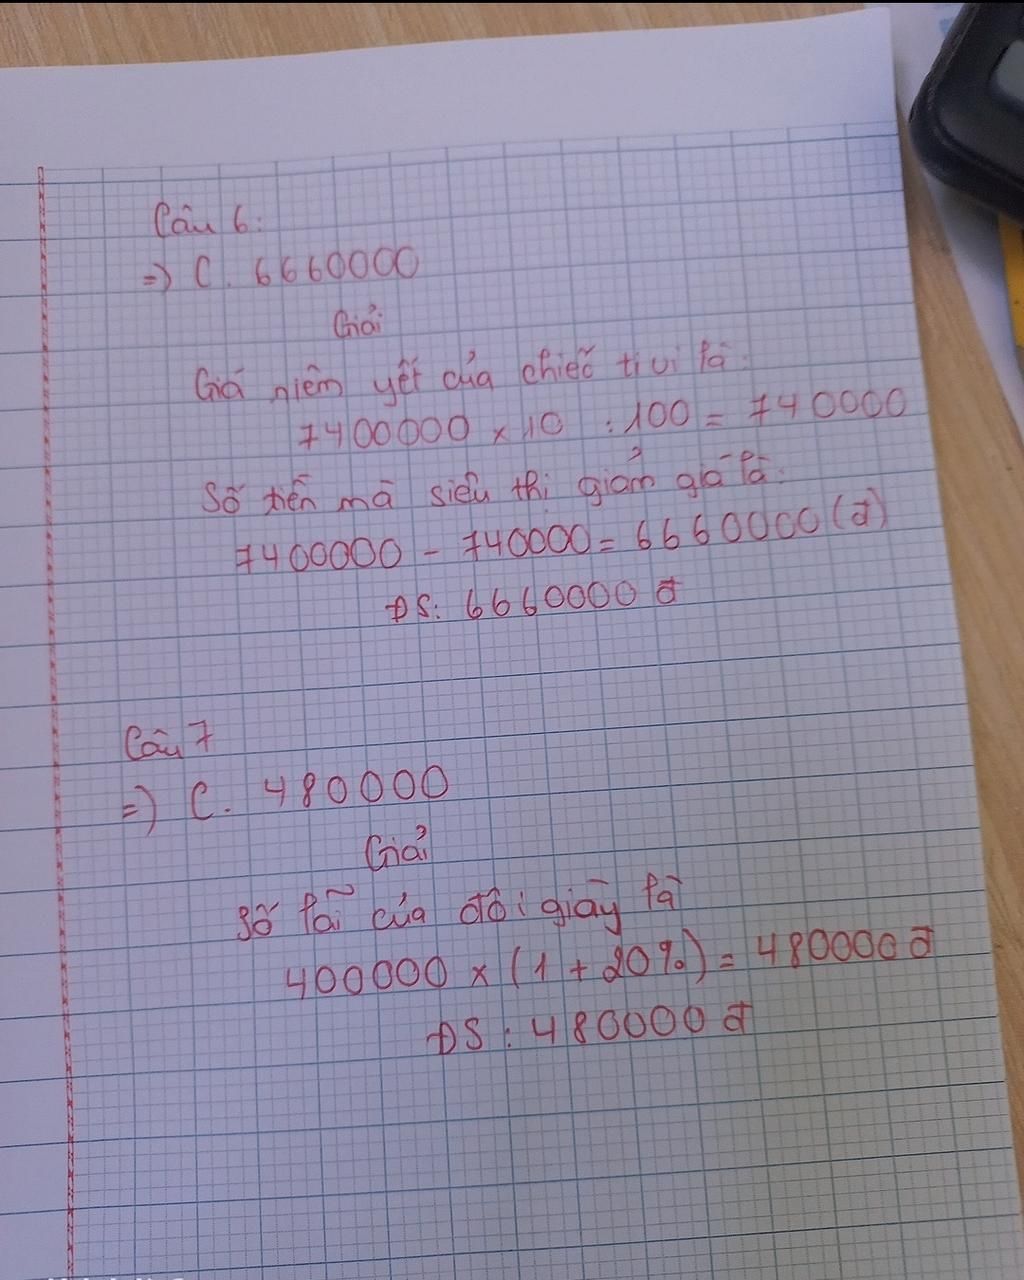 Câu 6:
=) C. 6660000
Giải
Giá niêm yết của chiếc ti vi là:
7400000 x 10 : 100 = 740000
Số tiền mà siêu thị giảm giá là:
7400000 - 740000 = 6660000 (đ)
ĐS: 6660000 đ
Câu 7
=) C. 480000
Giải
Số lãi của đôi giày là
400000 x (1 + 20%) = 480000 đ
ĐS : 480000 đ